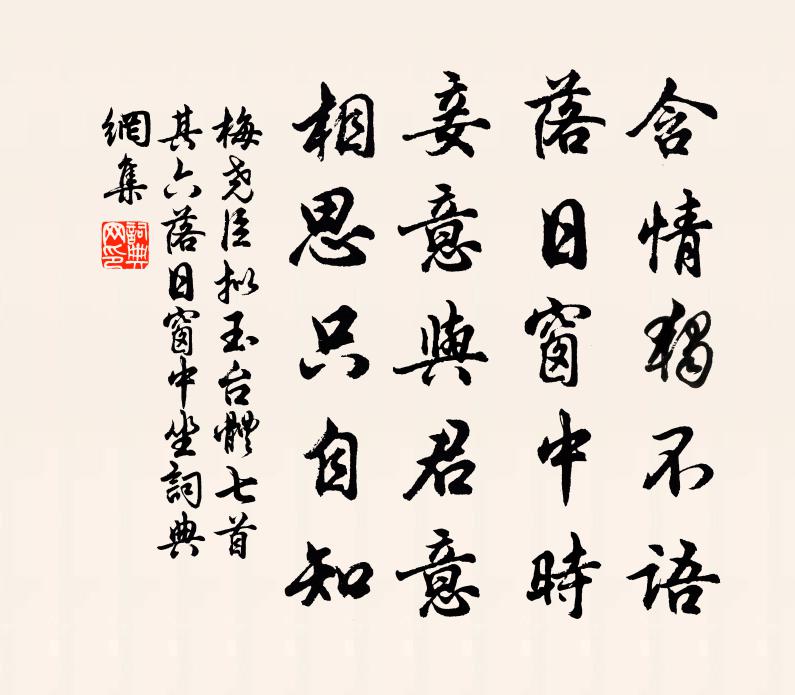 含情獨不語
落日窗中時
妾意與君意
相思只自知
梅堯臣拟玉台體七首
其六落日窗中坐詞典
網集
詞典网印